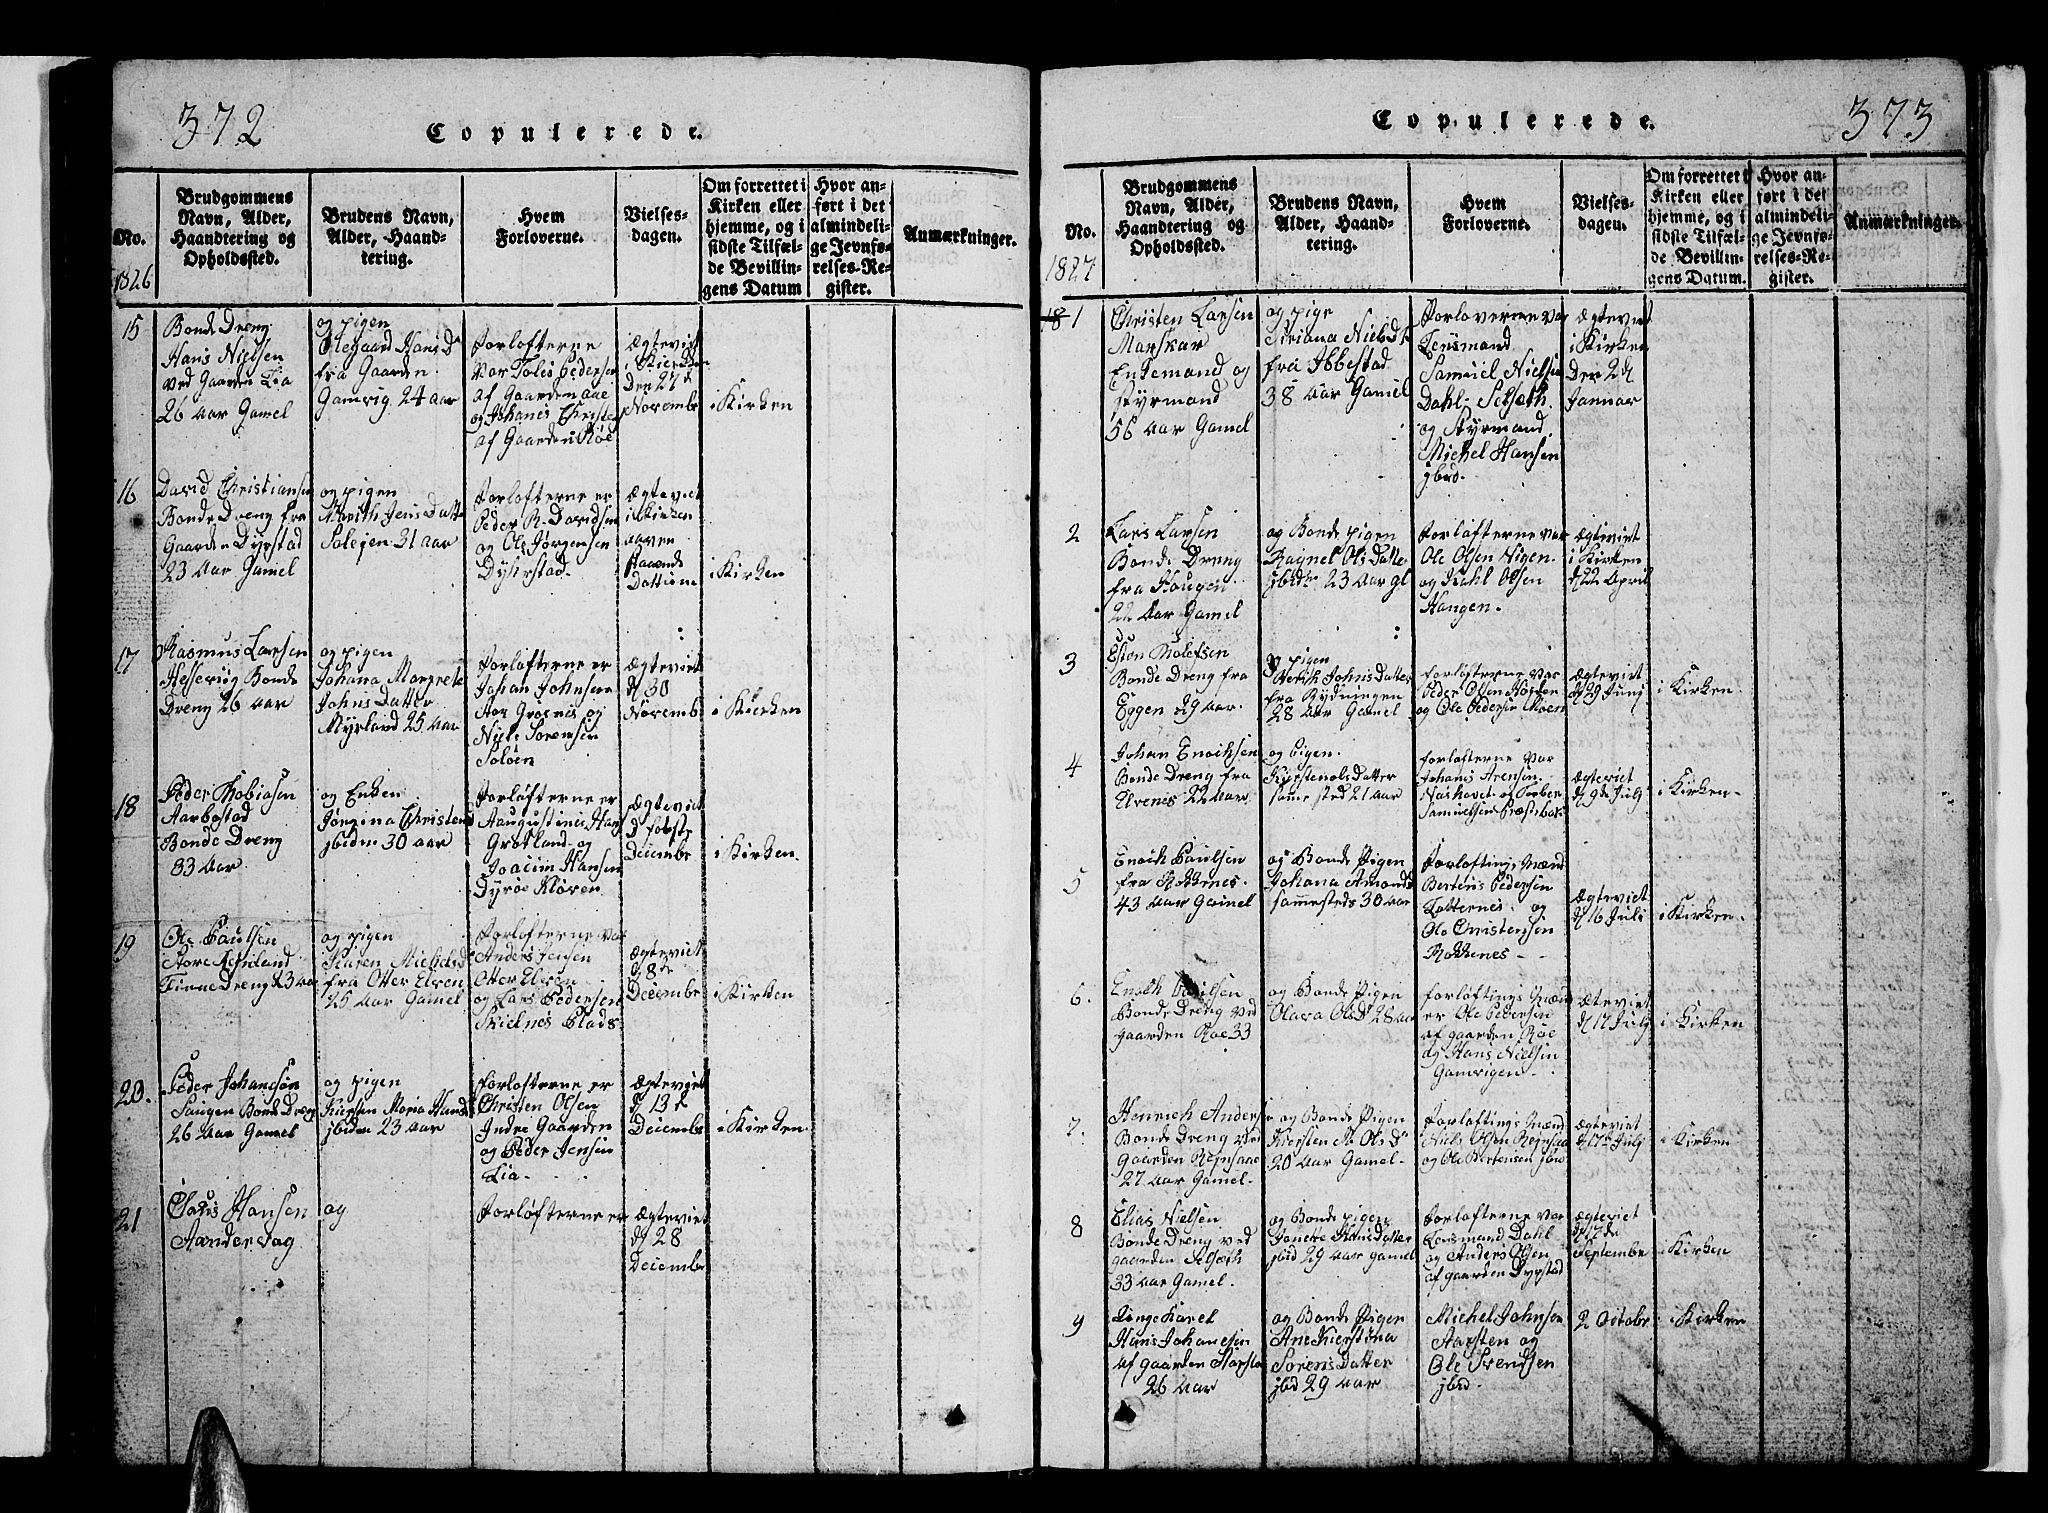 372
Copulerede.
No.
1826
Brudgommens
Navn, Alder,
Haandtering og
Opholdssted.
Brudens Navn,
Alder, Haand-
tering.
Hvem
Forloverne.
Vielses-
dagen.
Om forrettet i
Kirken eller
hjemme, og i
sidste Tilfæl-
de Bevillin-
gens Datum
Hvor an-
ført i det
almindeli-
ge Jevnfø-
relses-Re-
gister.
Anmærkninger.
15
Bonde Dreng
Hans Nielsen
ved Gaarden Lia
26 Aar Gamel
og pigen
Olegaard Hans D
fra Gaarden
Gamvig. 24 aar
Forlofterne
Var Tolis Peders
af Gaarden aae
og Johanes Christe
af Gaarden Røe
Ægteviet
i Kierken
Den 27de
Novembr
i Kirken
16
David Christianse
Bonde Dreng fra
Gaarden Dyrstad
23 Aar Gamel
og pigen
Marith Jens Datte
Solejen 31 aar
Forlofterne er
Peder R. Davidsen
og Ole Jørgensen
Dyhrstad.
Ægteviet
i Kirken
aaven
staaende
Dattum
i Kirken
17
Rasmus Larsen
Hesservig Bonde
Dreng 26 aar
og pigen
Johana Margrete
Johns Datter
Myrland 25 aar
Forlofterne er
Johan Johnsen
Stor Grøsnis og
Niels Sorensen
Soløen
Ægteviet
d 30
Novemb
i Kierken
18
Peder Thobiasen
Aarbostad
Bonde Dreng
33 Aar
og Enken
Jorgina Christens
jbidm 30 aar
Forlofterne er
Aaugustinis Hans
Grøtland og
Joacim Hansen
Dyrøe Kløven
Ægteviet
d første
Decembr
i Kirken
19
Ole Paulsen
Store
Finne Dreng 23 aar
og pigen
Karen Michels d
fra Otter Elven
25 aar Gamel
Forlofterne var
Anders Jensen
Otter Elven
og Lars Pedersen
Skielnes Plads
Ægteviet
d 8de
Decembe
i Kirken
20.
Peder Johansen
Saugen Bonde Dreng
26 Aar Gamel
og pigen
Kiersten Maria Hans
jbiden 23 aar
Forlofterne er
Christen Olsen
Indre Gaarden
og Peder Jensen
Lia.
Ægteviet
d 13de
Decembe
i Kirken.
21
Hansen
Sandervag
og
Forlofterne er
Ægteviet
d 28
Decembe
373
Copulerede.
No.
1827
Brudgommens
Navn, Alder,
Haandtering og
Opholdssted.
Brudens Navn,
Alder, Haand-
tering.
Hvem
Forloverne.
Vielses-
dagen.
Om forrettet i
Kirken eller
hjemme, og i
sidste Tilfæl-
de Bevillin-
gens Datum.
Hvor an-
ført i det
almindeli-
ge Jevnfø-
relses-Re-
gister.
Anmærkninger.
1
Christen Larsen
Marskar
Enkemand og
styrmand
56 aar Gamel
og pige
Siriana Niels D
fra Ibbestad
38 aar Gamel
Forloverne var
Lensmand
Samuel Nielsen
Dahl Selseth
og Styrmand
Michel Hansen
jbid.
Ægteviet
i Kirken
Den 2d
Januar
2
Lars Larsen
Bonde Dreng
fra Haugen
22 Aar Gamel
og Bonde pigen
Ragnel Ols Datte
jbidm 23 Aar gl
Forlofterne var
Ole Olsen Nigen
og Dahl Olsen
Hangen.
Ægteviet
i Kirken
d 22 April
3
Eston Tholefsen
Bonde Dreng fra
Eggen 29 Aar.
og pigen
Berith Johns Datter
fra Rydningen
28 Aar Gamel
forlofterne var
Peder Olsen Højden
og Ole Pedersen Moen
Ægteviet
d 29 Junj
i Kirken
4
Johan Enoihsen
Bonde Dreng fra
Elvenes 22 Aar
og Pigen.
Kiersten ols Datter
samme sted 21 aar
forlofterne var
Johanis Arensen
og Torber
Samuelsen
Ægteviet
d 9de Julj
i Kirken.
5
Enoih Paulsen
fra Rokkenes.
43 Aar Gamel
og Bonde Pigen
Johana Amonds
sammesteds 30 aar
Forloftings Mænd
Bertheus Pedersen
Latternes. og
Ole Christensen
Rokkenes
Ægteviet
d 16 Juli
i Kirken.
6.
Enoch Paulsen
Bonde Dreng ved
gaarden Røe 33
og Bonde Pigen
Olava Olsd 28 aar
forloftings Mænd
er Ole Pedersen
af gaarden Røe
og Hans Nielsen
Gamvigen.
Ægteviet
d 17 Julj
i Kirken
7.
Henrich Anders
Bonde Dreng ved
Gaarden Repsaae
27 Aar Gamel.
og Bonde Pigen
Kiersten M. Ols D
20 Aar Gamel.
Forloftings Mænd
Niels Olsen Repsaa
og Ole Bertensen jbid
Ægteviet
d 17de Julj
i Kirken
8
Elias Nielsen
Bonde Dreng ved
gaarden Selseth
33 Aar Gamel.
og Bonde pigen
Janete Hans Datter
jbid 29 aar gamel
Forlofterne var
Lensmand Dahl
og Anders Olsen
af gaarden Dyrstad
Ægteviet
d 17de
Septembe
i Kirken
9
Unge Karel
Hans Johannesen
af gaarden
26 Aar
og Bonde Pigen
Ane Kierstina
Sorens Datter
jbid 29 aar
Michel Johnsen
Aarsten og
Ole Svendsen
jbid.
2 Octobr
i Kirken